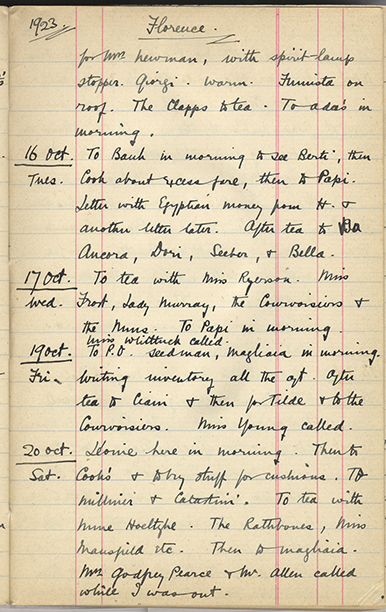 1923. Florence.
for Mrs Newman, with spirit lamp
stopper. Giorgi. Warm. Fumista on
roof. The Clapps to tea. To Ada's in
morning.
16 Oct. To Bank in morning to see Berti, then
Tues. Cook about excess fare, then to Papi.
Letter with Egyptian money from H. &
another letter later. After tea to
Ancora, Dori, Seeber, & Bella.
17 Oct. To tea with Miss Ryerson. Miss
Wed. Frost, Lady Murray, the Courvoisiers &
the Nuns. To Papi in morning.
Miss Whittuck called.
19 Oct. To P.O. seedman, Magliaia in morning.
Fri. Writing inventory all the aft. After
tea to Ciani & then for Tilde & to the
Courvoisiers. Miss Young called.
20 Oct. Leonie here in morning. Then to
Sat. Cook's & to buy stuff for cushions. To
milliner & Calastini. To tea with
Mme Hoeltyke. The Rathbones, Miss
Mansfield etc. Then to Magliaia.
Mrs Godfrey Pearce & Mr. Allen called
while I was out.